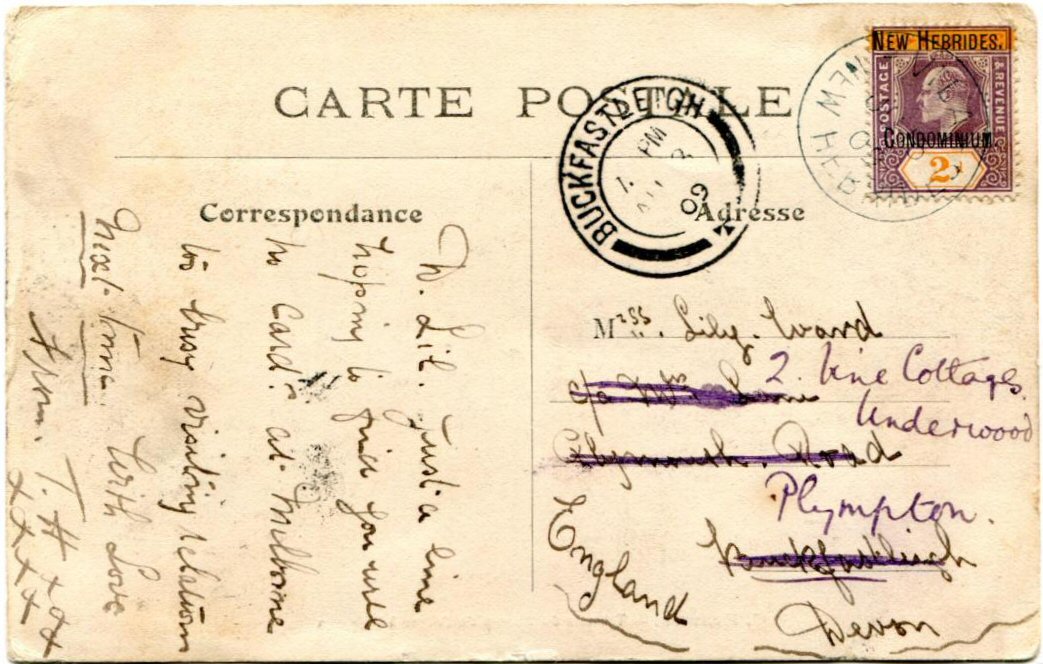 CARTE POSTALE
NEW HEBRIDES.
POSTAGE & REVENUE
CONDOMINIUM.
2
NEW HEB
BUCKFASTLEIGH
PM
09
Correspondance
Adresse
D. Lil. Just a line
hoping to find you well
no Cards at Melborne
to busy visiting relations
Next time. With Love
From. T. H xox
xxxx
Miss. Lily. Ward
c/o Mrs
2. Vine Cottages
Underwood
Plymouth. Road
Plympton.
Buckfastleigh
Devon
England